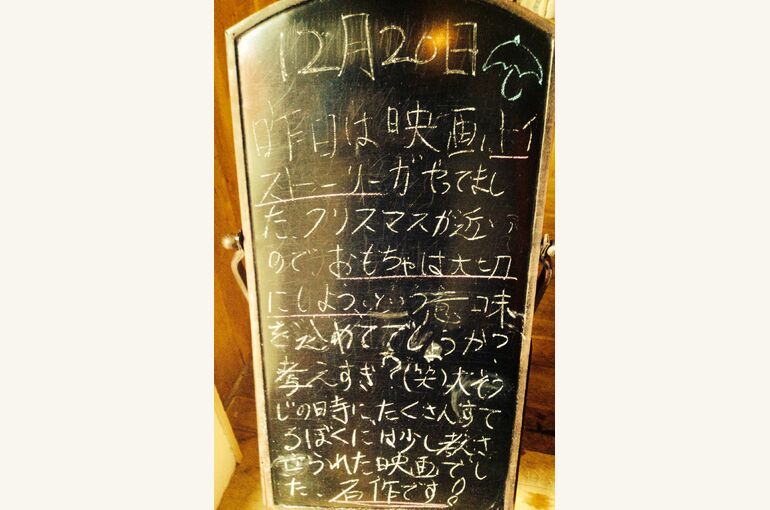 12月20日
昨日は映画トイ
ストーリーがやってまし
た、クリスマスが近い
ので、おもちゃは大切
にしよう、という意味
を込めてでしょうか、
考えすぎ?(笑)大そう
じの時に、たくさんすて
るぼくには少し教さ
せられた映画でし
た、名作です!